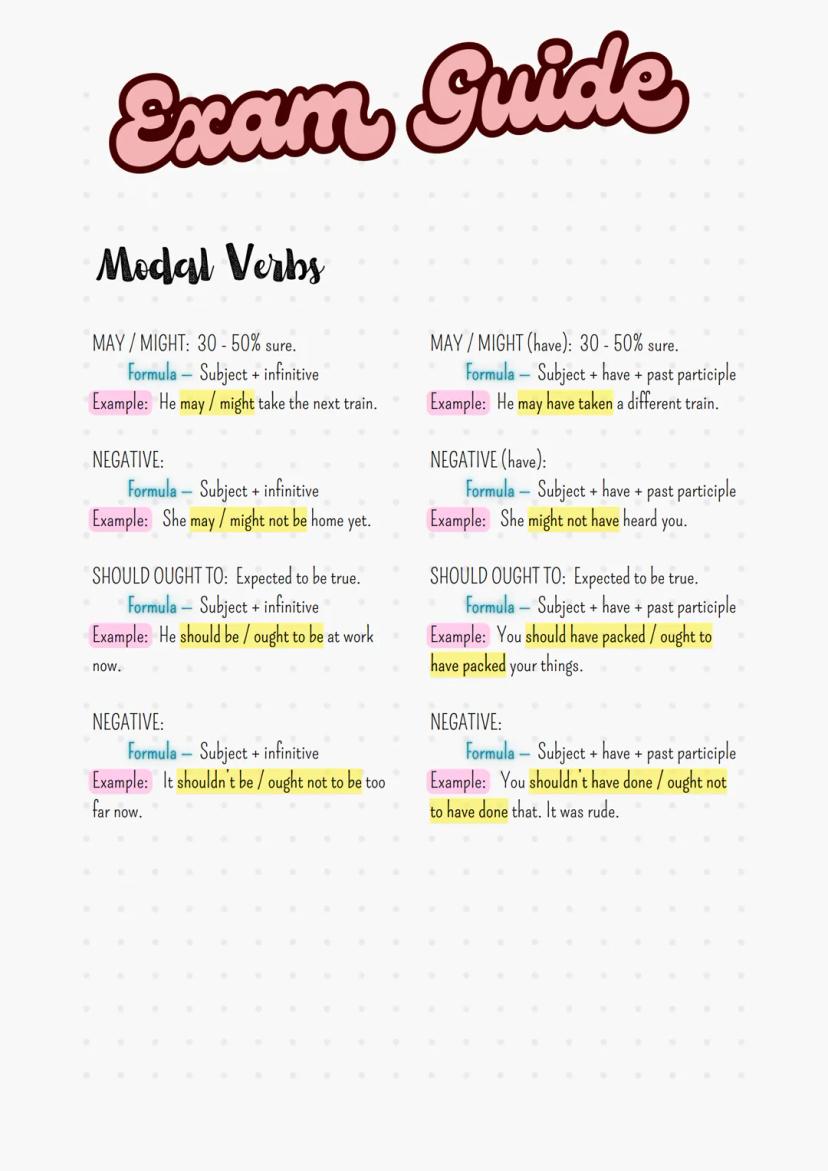 Exam Guide
Modal Verbs
MAY / MIGHT: 30 - 50% sure.
Formula – Subject + infinitive
Example: He may / might take the next train.
NEGATIVE:
Formula – Subject + infinitive
Example: She may / might not be home yet.
SHOULD OUGHT TO: Expected to be true.
Formula – Subject + infinitive
Example: He should be / ought to be at work
now.
NEGATIVE:
Formula – Subject + infinitive
Example: It shouldn't be / ought not to be too
far now.
MAY / MIGHT (have): 30 - 50% sure.
Formula – Subject + have + past participle
Example: He may have taken a different train.
NEGATIVE (have):
Formula – Subject + have + past participle
Example: She might not have heard you.
SHOULD OUGHT TO: Expected to be true.
Formula – Subject + have + past participle
Example: You should have packed / ought to
have packed your things.
NEGATIVE:
Formula – Subject + have + past participle
Example: You shouldn't have done / ought not
to have done that. It was rude.